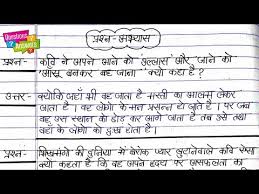 Questions
Answers
प्रश्न - अभ्यास
प्रश्न- कवि ने अपने आने को 'उल्लास' और जाने को
'आँसू बनकर बह जाना' क्यों कहा है ?
उत्तर- क्योंकि जहाँ भी वह जाता है मस्ती का आलम लेकर
जाता है। वह लोगों के मन प्रसन्न हो जाते है। पर जब
वह उस स्थान को छोड़ कर आगे जाता है तब उसे तथा
वहाँ के लोगों को दुःख होता है।
प्रश्न- भिखमंगों की दुनिया में बेरोक प्यार लुटानेवाला कवि ऐसा
क्यों कहता है कि वह अपने हृदय पर असफलता का